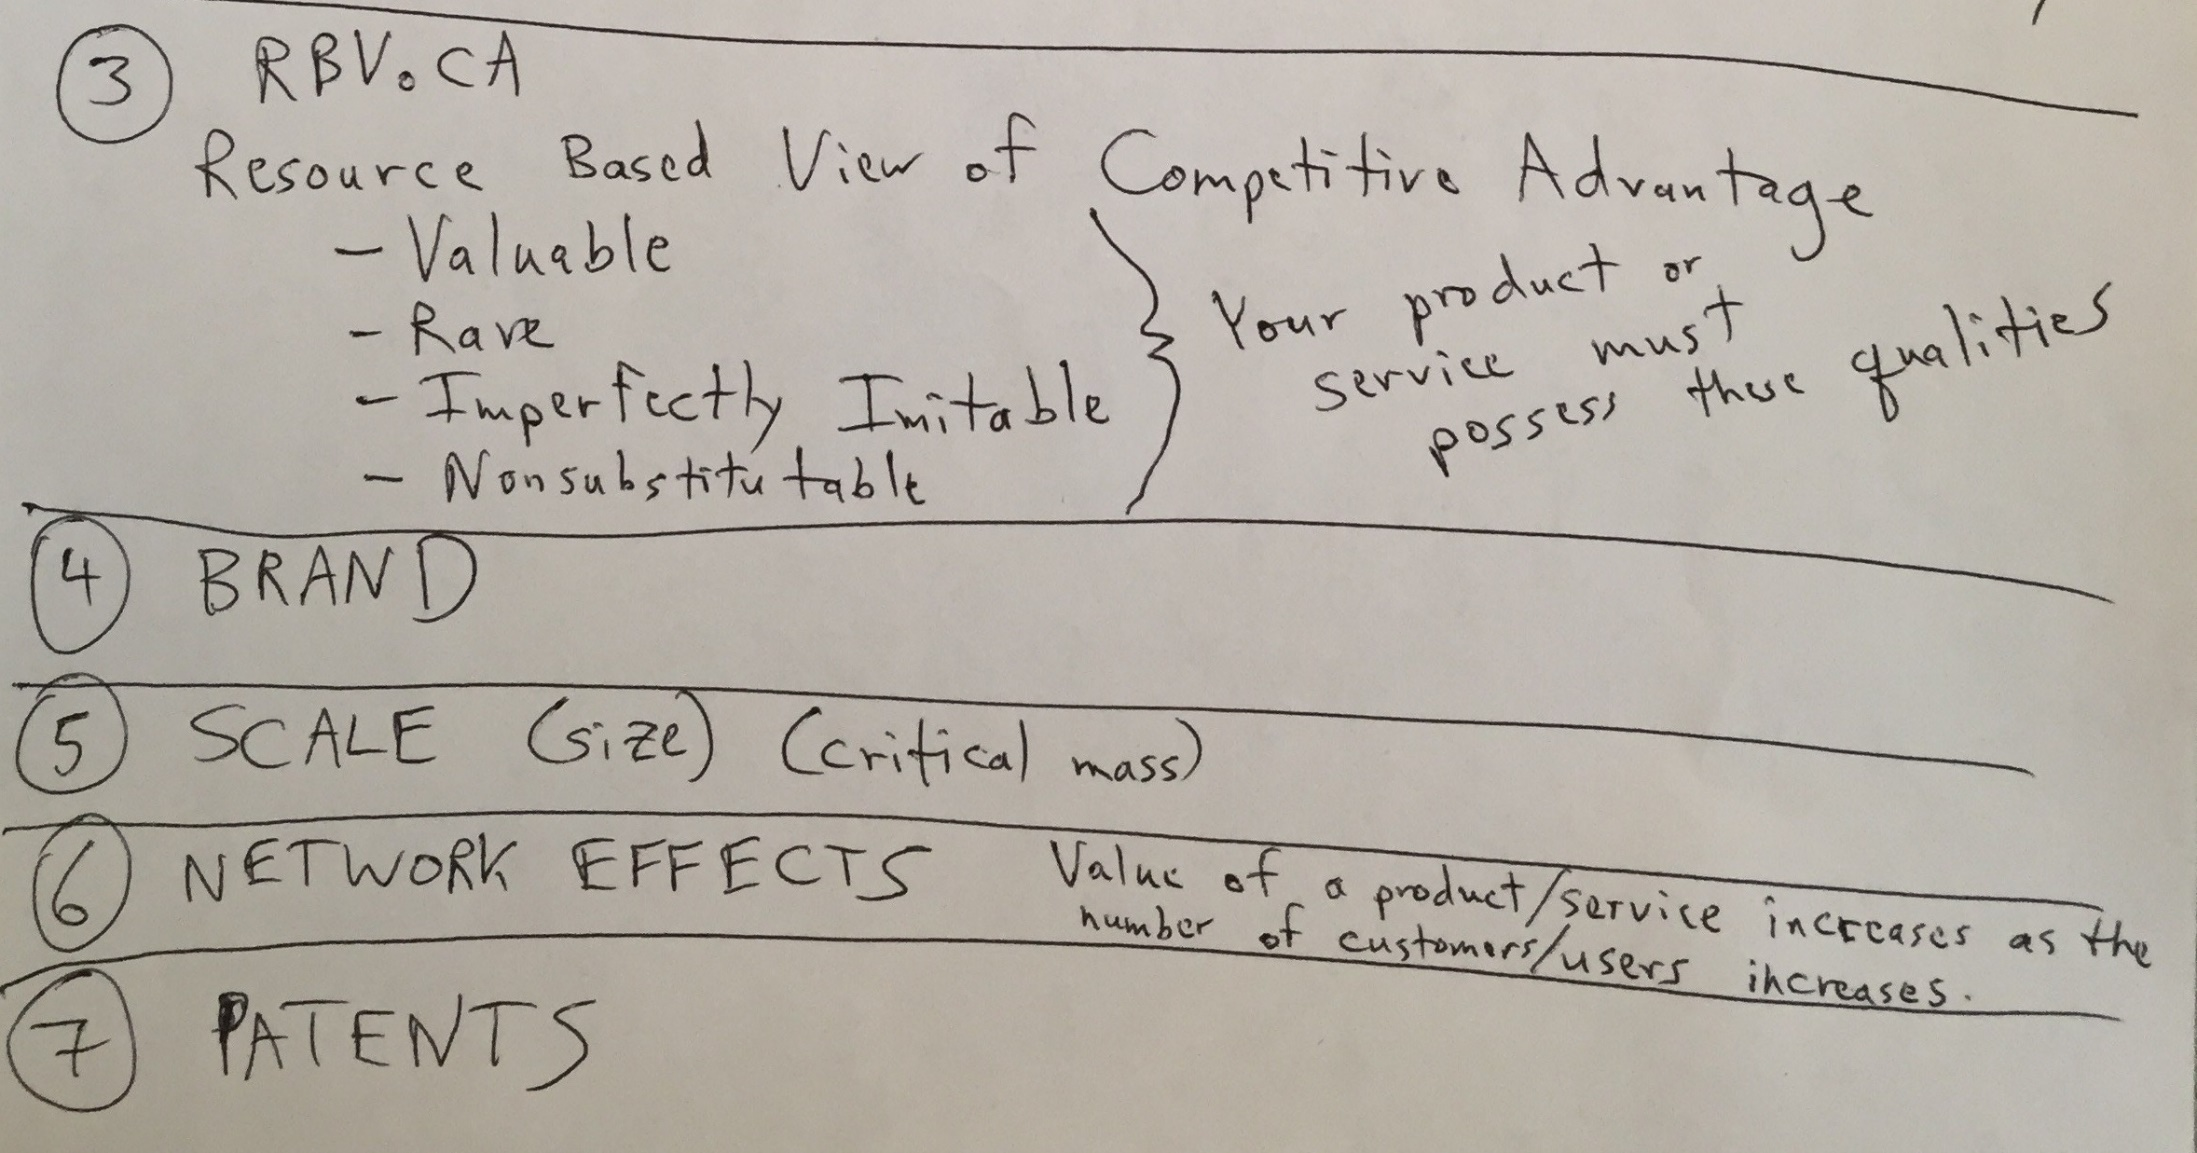 3 RBV.CA
Resource Based View of Competitive Advantage
- Valuable
- Rare
- Imperfectly Imitable
- Nonsubstitutable
Your product or
service must
possess these qualities
4 BRAND
5 SCALE (size) (critical mass)
6 NETWORK EFFECTS Value of a product/service increases as the
number of customers/users increases.
7 PATENTS